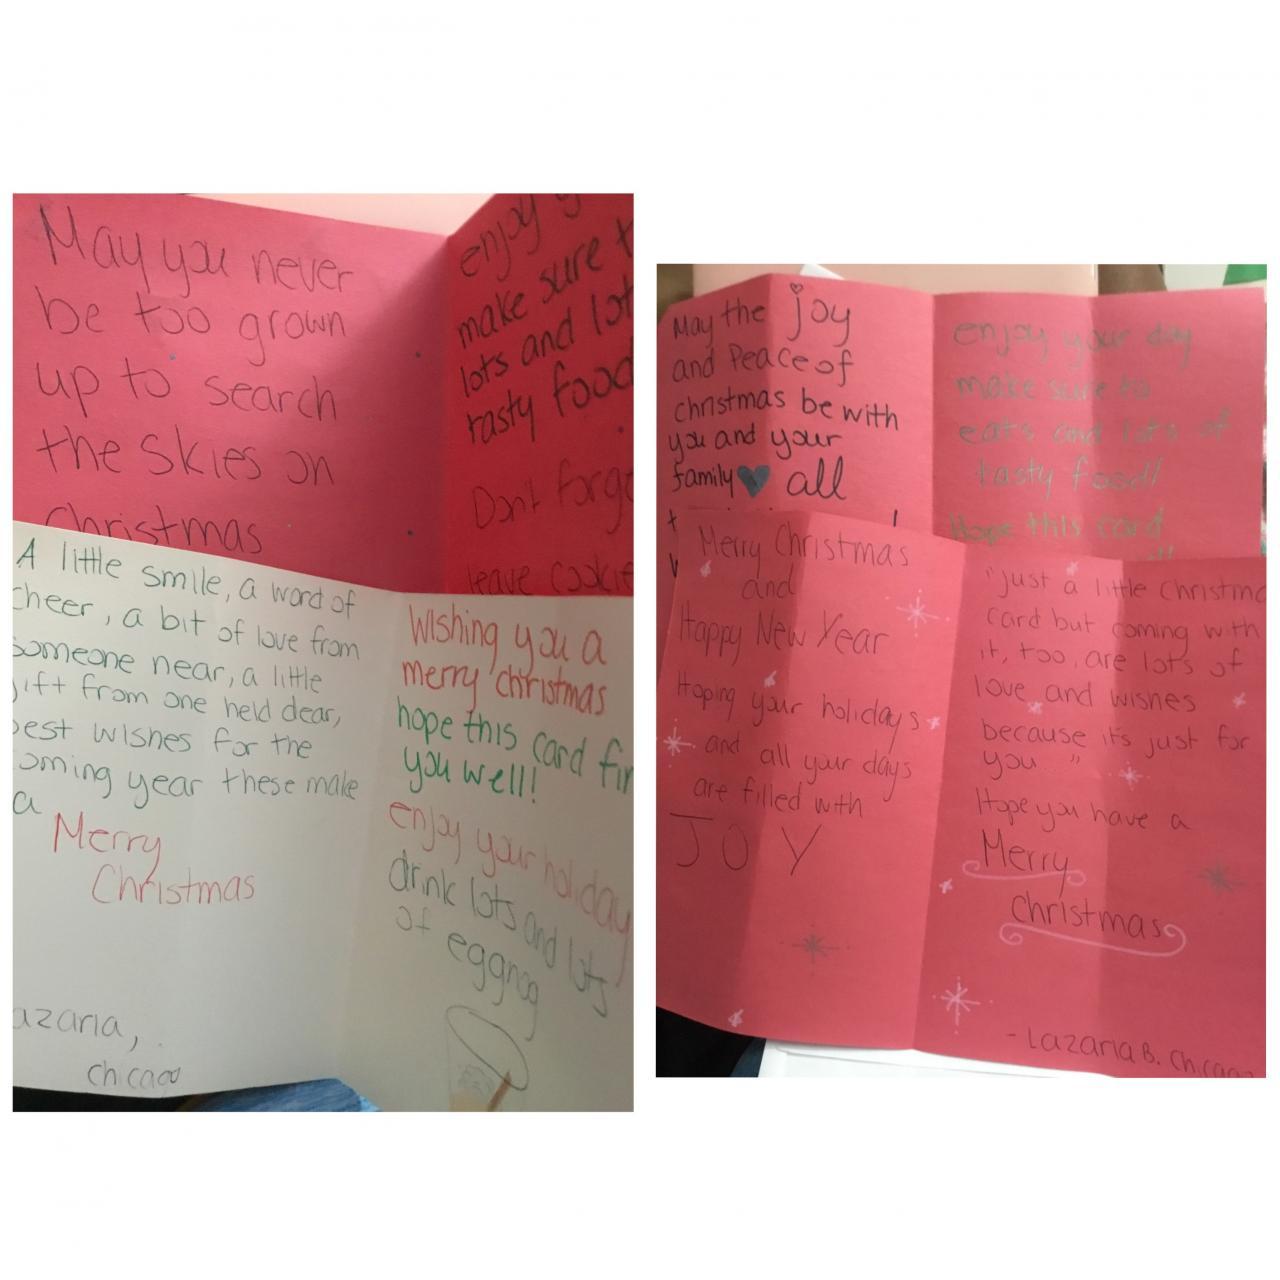 May you never
be too grown
up to search
the skies on
christmas
enjoy
make sure
lots and lot
tasty food
Dont forge
leave cookie
A little smile, a word of
cheer, a bit of love from
someone near, a little
gift from one held dear,
best wishes for the
coming year these make
a
Merry
Christmas
azaria,
chicago
Wishing you a
merry christmas
hope this card fin
you well!
enjoy your holiday
drink lots and lots
of eggnog
May the joy
and Peace of
christmas be with
you and your
family all
enjoy your day
make sure to
eats and lots of
tasty food!
Hope this card
Merry Christmas
and
Happy New Year
Hoping your holidays
and all your days
are filled with
JOY
"just a little Christma
card but coming with
it, too, are lots of
love and wishes
because it's just for
you"
Hope you have a
Merry
christmas
- Lazaria B. Chicago